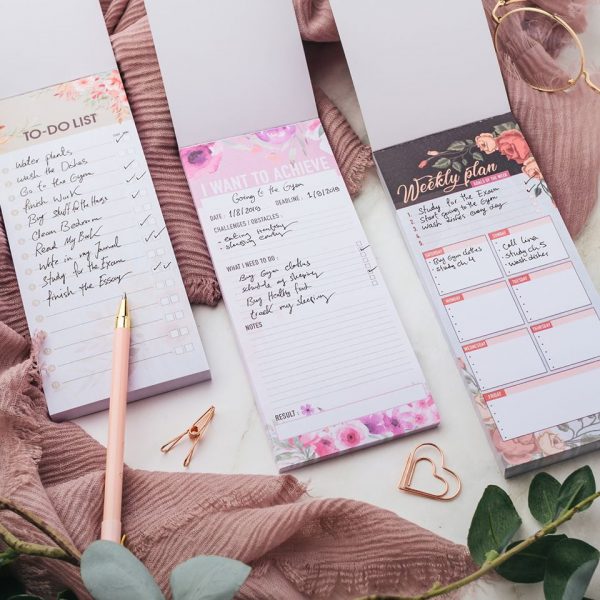 TO-DO LIST
Water plants
wash the Dishes
Go to the Gym
finish Work
Buy Stuff for the
clean Bedroom
Read My Book
Write in my Journal
study for the Exam
finish the Essay
I WANT TO ACHIEVE
Going to the Gym
DATE : 1/8/2018 DEADLINE : 1/9/2019
CHALLENGES / OBSTACLES :
- eating
- sleeping early
WHAT I NEED TO DO :
Buy Gym clothes
schedule my sleeping
Buy Healthy food
track my sleeping
NOTES
RESULT :
Weekly plan
GOALS OF THE WEEK
1. Study for the Exam
2. Start going to the Gym
3. wash dishes every day
4.
5.
SATURDAY
Buy Gym clothes
study ch.4
call Lina
study ch.5
wash dishes
MONDAY
TUESDAY
WEDNESDAY
THURSDAY
FRIDAY